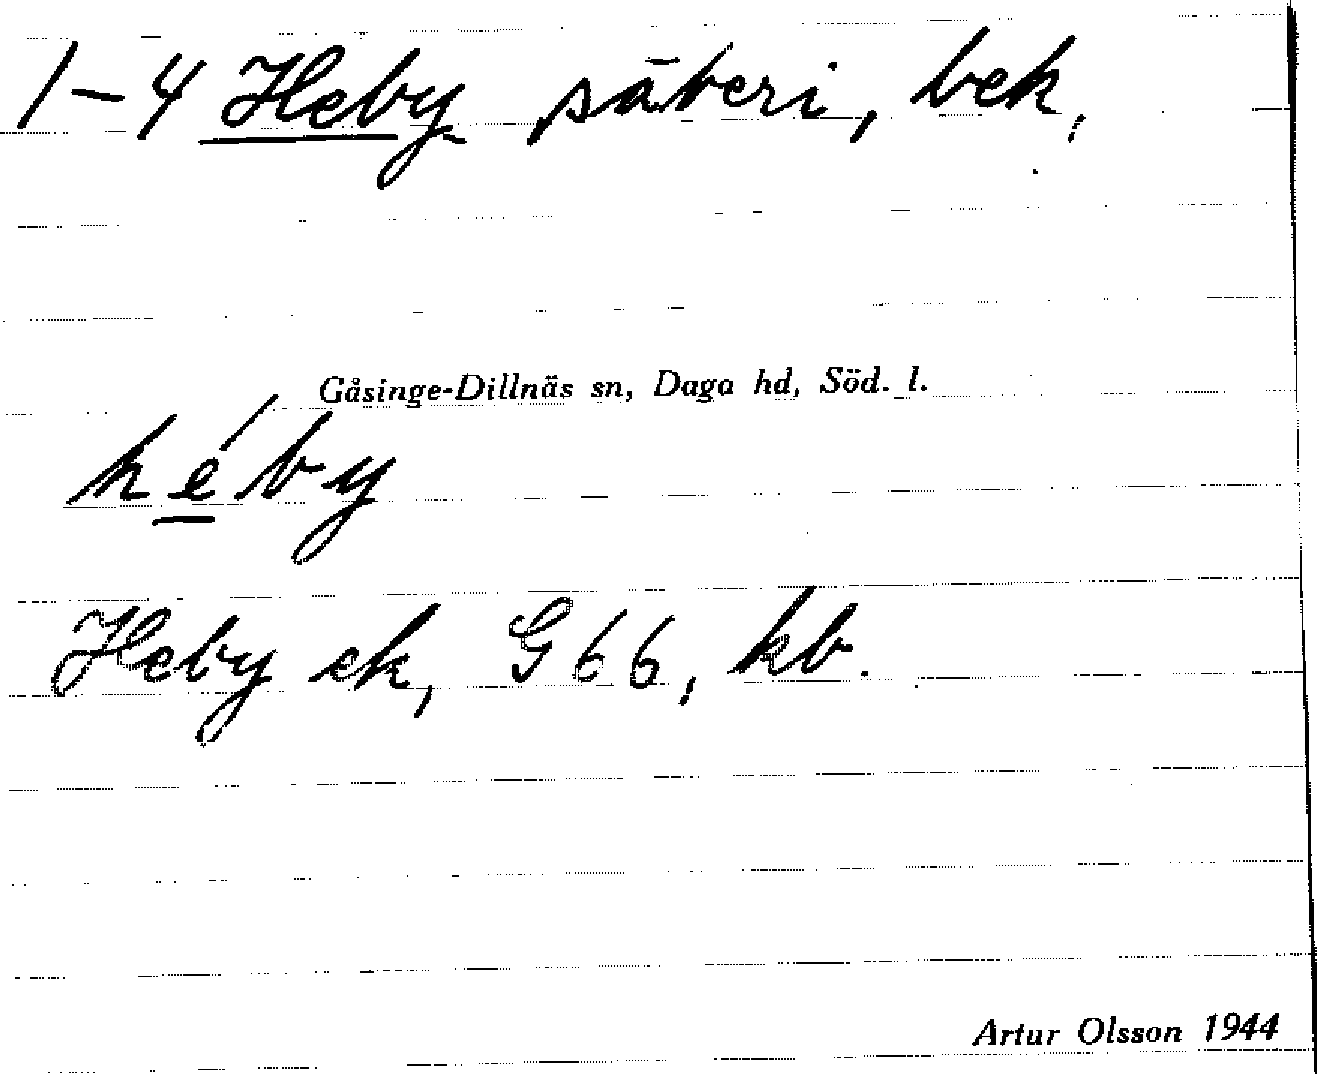 1-4 Heby säteri, bek,
Gåsinge-Dillnäs sn, Daga hd, Söd. l.
héby
Heby ek, G 66, kb.
Artur Olsson 1944